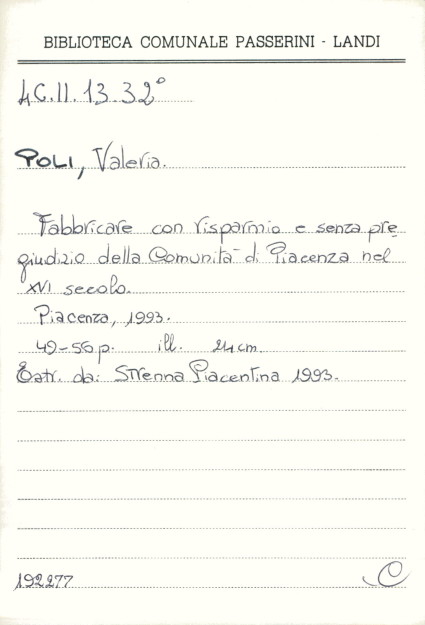 BIBLIOTECA COMUNALE PASSERINI - LANDI
4C.II.13.32°
POLI, Valeria.
Fabbricare con risparmio e senza pre
giudizio della Comunità di Piacenza nel
XVI secolo.
Piacenza, 1993.
49-56 p. ill. 24 cm.
Estr. da: Strenna Piacentina 1993.
192277 C